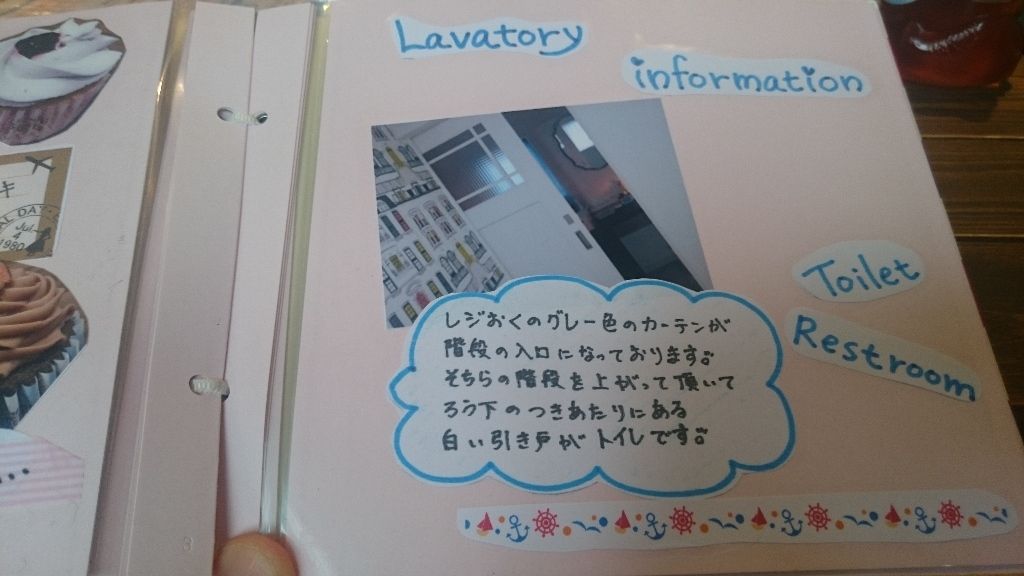 Lavatory
information
レジおくのグレー色のカーテンが
階段の入口になっております。
そちらの階段を上がって頂いて
ろう下のつきあたりにある
白い引き戸がトイレです。
Toilet
Restroom
キ
DAY
Jul
4
1980